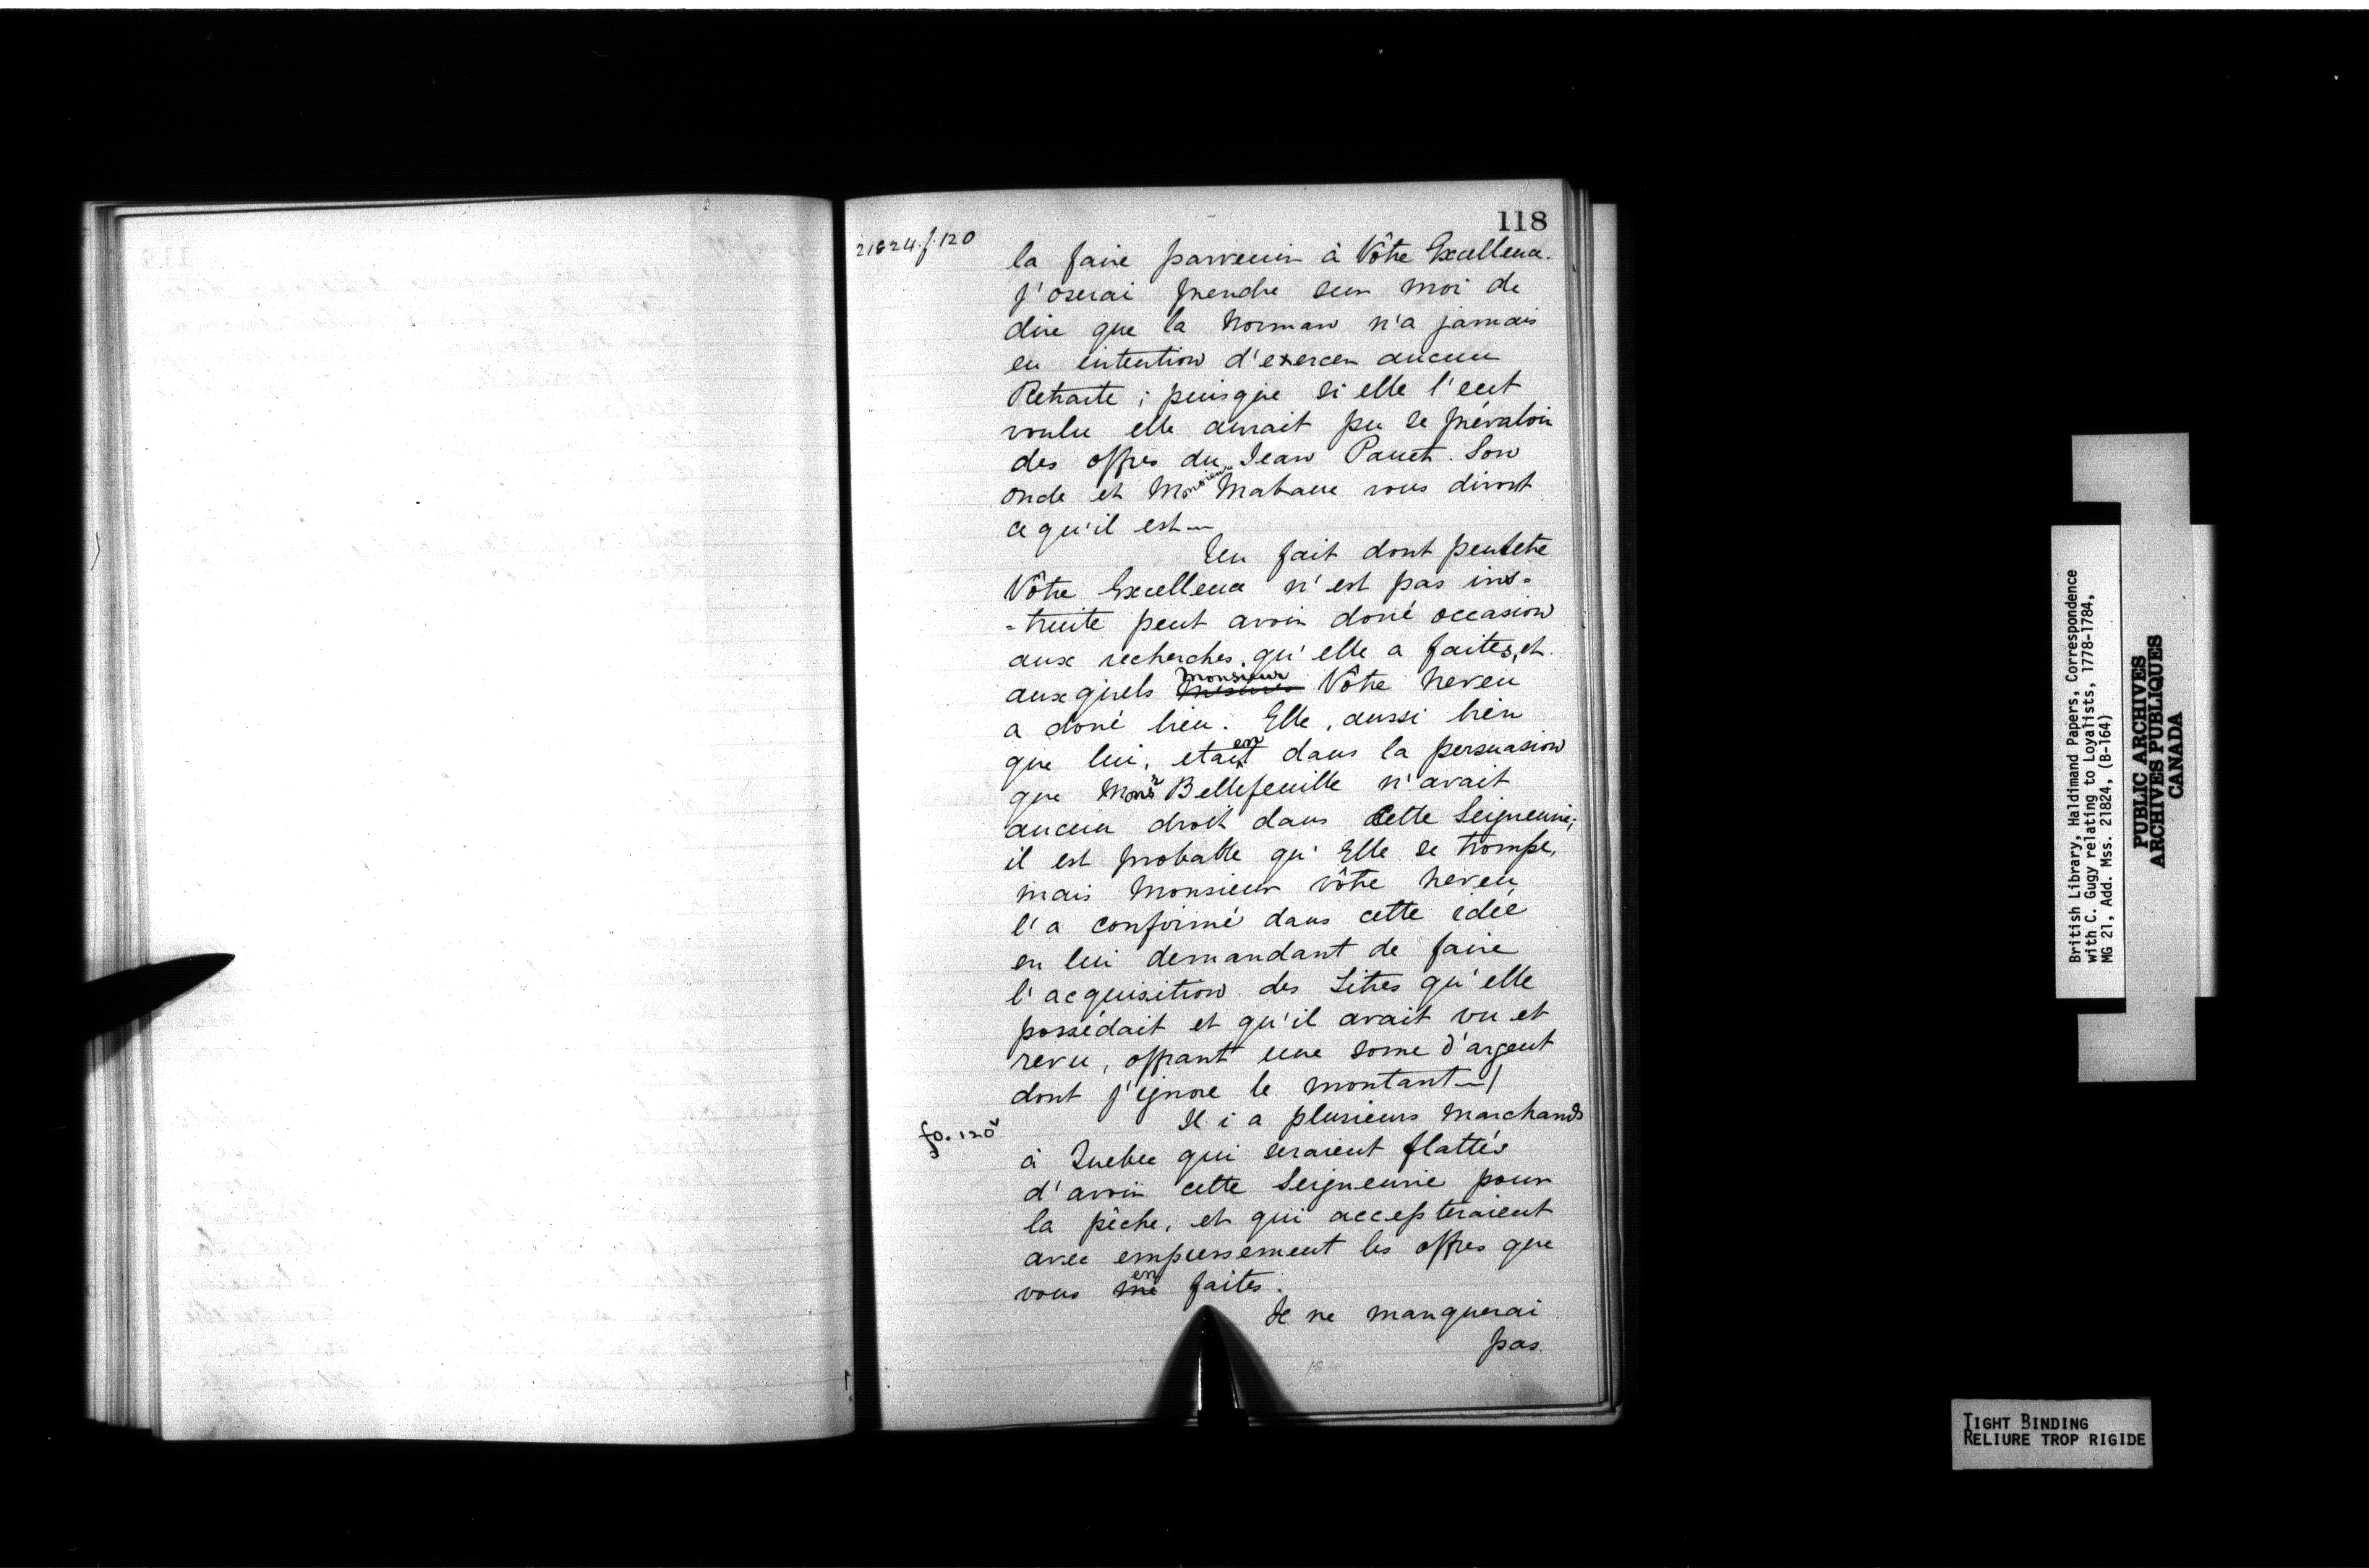 118
21824.f.120
la faire parvenir à Vôtre Excellence.
J'oserai prendre sur moi de
dire que la Norman n'a jamais
eu intention d'exercer aucun
Retraite ; puisque si elle l'eut
voulu elle aurait pu se prévaloir
des offres du Jean Panet. Son
oncle et Monsieur Mabane vous diront
ce qu'il est—
Un fait dont peutetre
Vôtre Excellence n'est pas ins=
=truite peut avoir doné occasion
aux recherches, qu'elle a faites, et
auxquels Monsieur Vôtre neveu
a doné lieu. Elle, aussi bien
que lui, etaient dans la persuasion
que Monsr Bellefeuille n'avait
aucun droit dans Cette Seigneurie;
il est probable qu'Elle se trompe,
mais Monsieur vôtre neveu
l'a confirmé dans cette idée
en lui demandant de faire
l'acquisition des Titres qu'elle
possédait et qu'il avait vu et
revu, offrant une some d'argent
dont j'ignore le montant—/
fo. 120v
Il i a plusieurs Marchands
à Quebec qui seraient flattés
d'avoir cette Seigneurie pour
la pêche, et qui accepteraient
avec empressement les offres que
vous me en faites.
Je ne manquerai
pas
British Library, Haldimand Papers, Correspondence
with C. Gugy relating to Loyalists, 1778-1784,
MG 21, Add. Mss. 21824, (B-164)
PUBLIC ARCHIVES
ARCHIVES PUBLIQUES
CANADA
TIGHT BINDING
RELIURE TROP RIGIDE